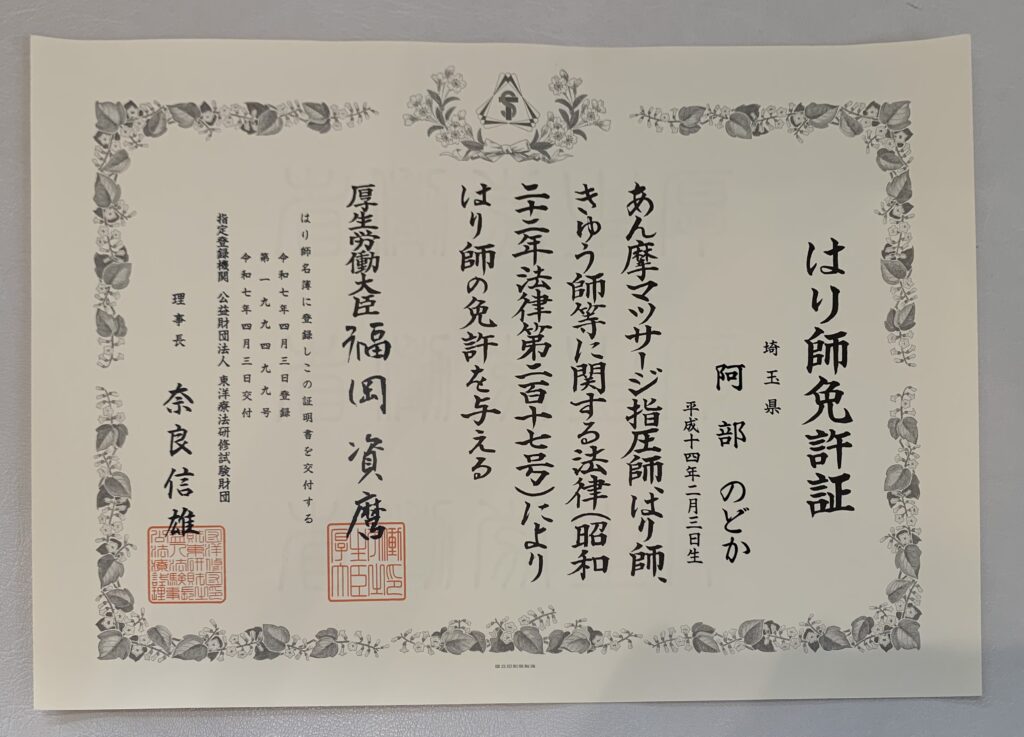 はり師免許証
埼玉県
阿部 のどか
平成十四年二月三日生
あん摩マッサージ指圧師、はり師、
きゅう師等に関する法律（昭和
二十二年法律第二百十七号）により
はり師の免許を与える
厚生労働大臣 福岡 資麿
はり師名簿に登録しこの証明書を交付する
令和七年四月三日登録
第一九九四九九号
令和七年四月三日交付
指定登録機関 公益財団法人 東洋療法研修試験財団
理事長 奈良信雄